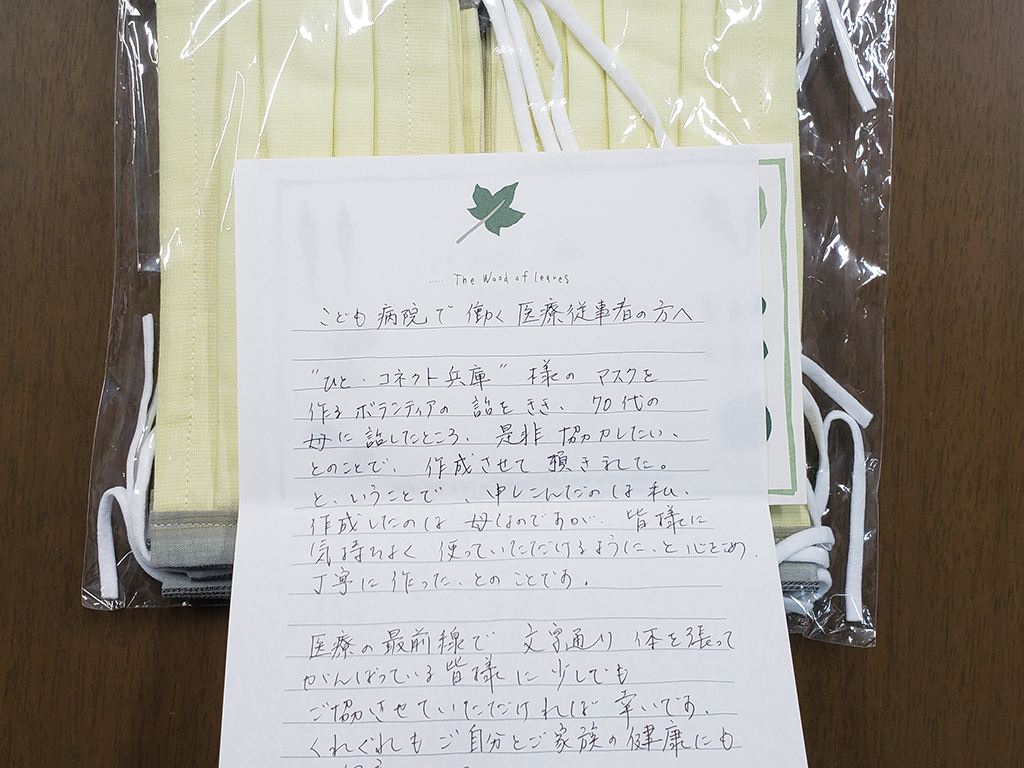 ..... The Wood of leaves
こども病院で働く医療従事者の方へ
"ひと・コネクト兵庫"様のマスクを
作るボランティアの話をきき、70代の
母に話したところ、是非協力したい、
とのことで、作成させて頂きました。
と、いうことで、申しこんだのは私、
作成したのは母なのですが、皆様に
気持ちよく使っていただけるように、と心をこめ、
丁寧に作った、とのことです。
医療の最前線で文字通り体を張って
がんばっている皆様に少しでも
ご協力させていただければ幸いです。
くれぐれもご自分とご家族の健康にも